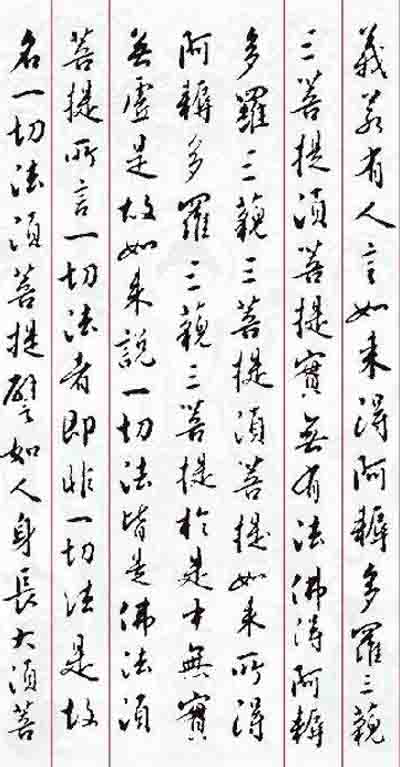 義若有人言如來得阿耨多羅三藐
三菩提須菩提實無有法佛得阿耨
多羅三藐三菩提須菩提如來所得
阿耨多羅三藐三菩提於是中無實
無虛是故如來說一切法皆是佛法須
菩提所言一切法者即非一切法是故
名一切法須菩提譬如人身長大須菩